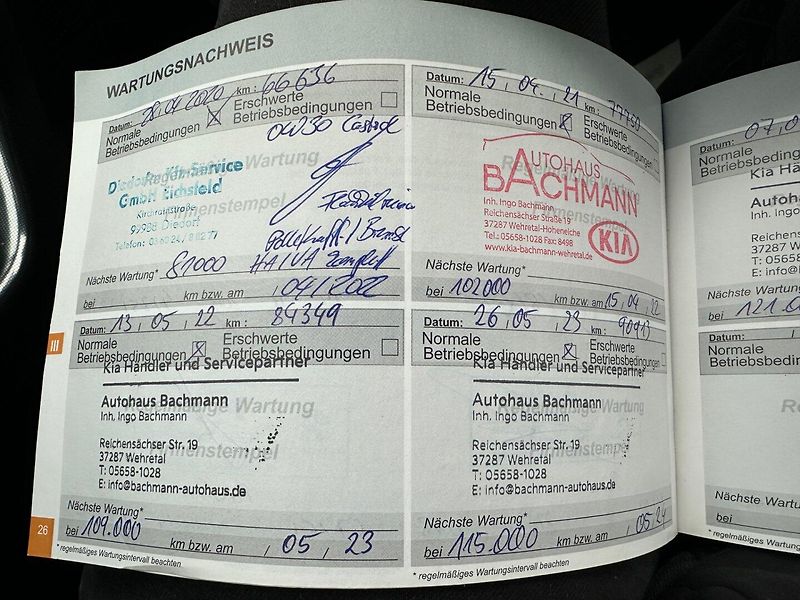 WARTUNGSNACHWEIS
Datum: 28.04.2020 km: 66636
Normale Betriebsbedingungen
Erschwerte Betriebsbedingungen
0W30 Castrol
Regelmäßige Wartung
GmbH Eichsfeld
Kirchrainstraße
99988 Diedorf
Nächste Wartung*
bei 81000 km bzw. am
Datum: 15, 04., 21 km:
Normale Betriebsbedingungen
Erschwerte Betriebsbedingungen
AUTOHAUS
BACHMANN
Inh. Ingo Bachmann
Reichensächser Straße 19
37287 Wehretal-Hoheneiche
Tel.: 05658-1028 Fax: 8498
www.kia-bachmann-wehretal.de
KIA
Nächste Wartung*
bei 102000 km bzw. am 15, 04, 22
III
Datum: 13, 05, 22 km: 84349
Normale Betriebsbedingungen
Erschwerte Betriebsbedingungen
Kia Händler und Servicepartner
Autohaus Bachmann
Inh. Ingo Bachmann
Regelmäßige Wartung
Firmenstempel
Reichensächser Str. 19
37287 Wehretal
T: 05658-1028
E: info@bachmann-autohaus.de
Nächste Wartung*
bei 109.000 km bzw. am , 05, 23
Datum: 26, 05, 23 km: 90913
Normale Betriebsbedingungen
Erschwerte Betriebsbedingungen
Kia Händler und Servicepartner
Autohaus Bachmann
Inh. Ingo Bachmann
Regelmäßige Wartung
Firmenstempel
Reichensächser Str. 19
37287 Wehretal
T: 05658-1028
E: info@bachmann-autohaus.de
Nächste Wartung*
bei 115.000 km bzw. am , 05, 24
26
* regelmäßiges Wartungsintervall beachten
* regelmäßiges Wartungsintervall beachten
Datum: 07,
Normale
Betriebsbeding
Kia Händ
Autohaus
Inh. Ingo B
Reichensä
37287 We
T: 05658
E: info@
Nächste Wartung
bei 121.0
Datum:
Normale
Betriebsbedin
Nächste Wartung
bei
* regelmäßiges Wartung